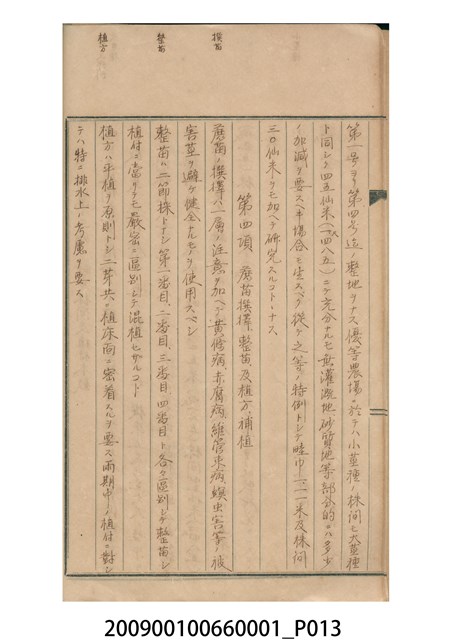 撰苗
整苗
植方
第一号ヨリ第四号迄ノ整地ヲナス優等農場ニ於テハ小莖種ノ株間モ大莖種
ト同シク四五仙米(一四八五)ニテ充分ナルモ新灌漑地砂質地等部分的ニハ多少
ノ加減ヲ要スベキ場合モ生スベク従テ之等ノ特例トシテ畦巾一、一一米及株間
三〇仙米ヲモ加ヘテ研究スルコトヽナス
第四項 蔗苗撰擇、整苗、及植方、補植
蔗苗ノ撰擇ハ一層ノ注意ヲ加ヘテ黄條病、赤腐病、維管束病、螟虫害等ノ被
害莖ヲ避ケ健全ナルモノヲ使用スベシ
整苗ハ二節株トナシ第一番目、二番目、三番目、四番目ト各々區別シテ整苗シ
植付ニ當リテモ嚴密ニ區別シテ混植セザルコト
植方ハ平植ヲ原則トシ二芽共ニ植床面ニ密着スルヲ要ス雨期中ノ植付ニ對シ
テハ特ニ排水上ノ考慮ヲ要ス
200900100660001_P013